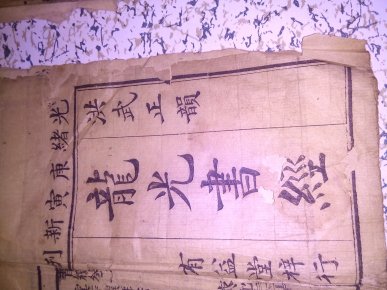 光緒庚寅新刊
洪武正韻
龍光書經
有益堂梓行